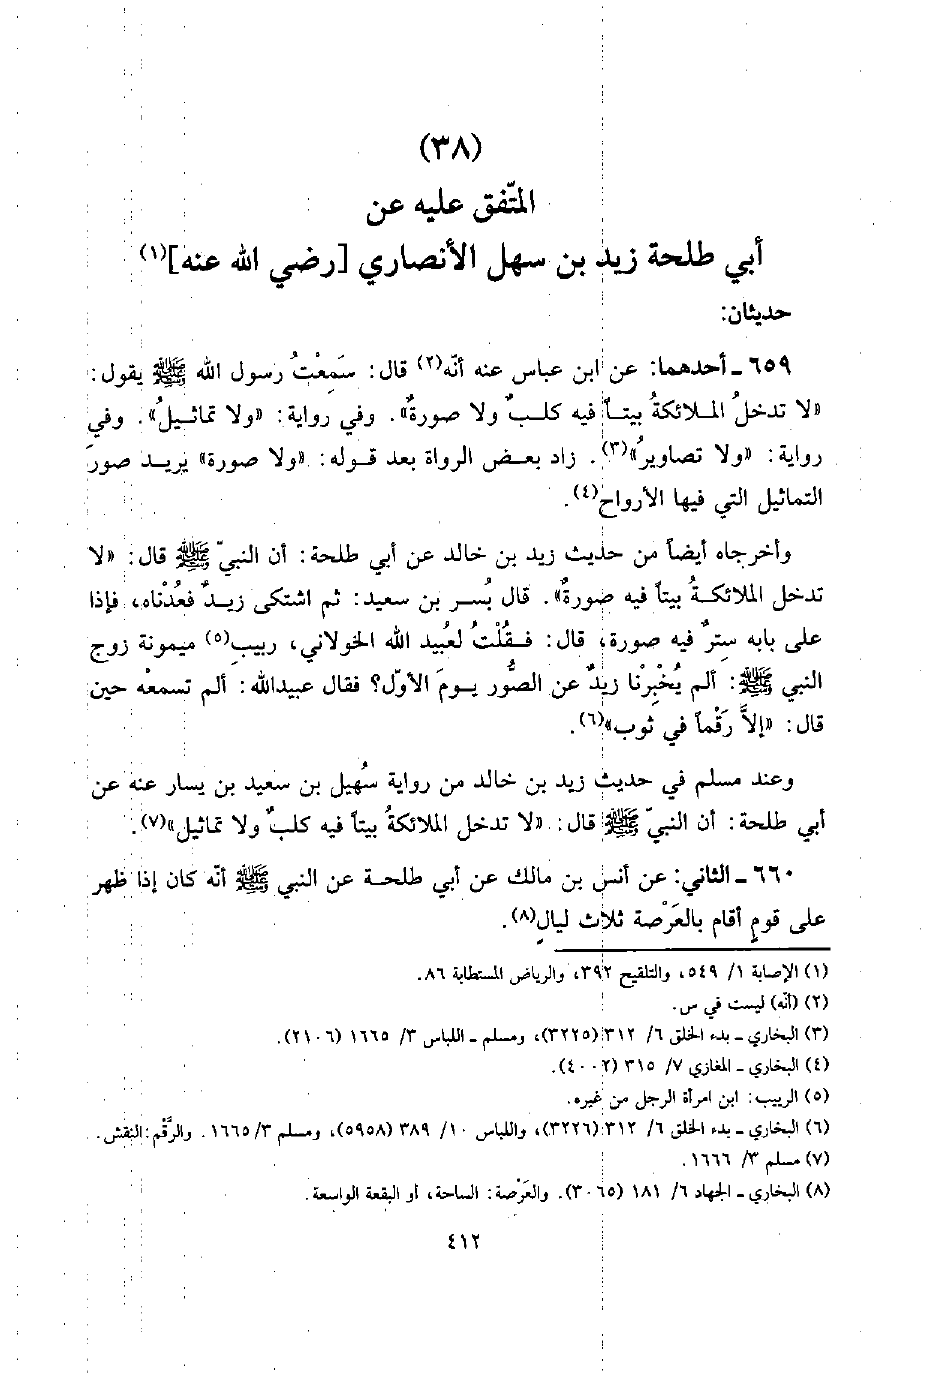 (٣٨)
المتّفق عليه عن
أبي طلحة زيد بن سهل الأنصاري [رضي الله عنه](١)
حديثان:
٦٥٩ ـ أحدهما: عن ابن عباس عنه أنّه(٢) قال: سَمِعْتُ رسول الله ﷺ يقول:
«لا تدخلُ الملائكةُ بيتاً فيه كلبٌ ولا صورةٌ». وفي رواية: «ولا تماثيلُ». وفي
رواية: «ولا تصاويرُ»(٣). زاد بعض الرواة بعد قوله: «ولا صورة» يريد صورَ
التماثيل التي فيها الأرواح(٤).
وأخرجاه أيضاً من حديث زيد بن خالد عن أبي طلحة: أن النبيّ ﷺ قال: «لا
تدخل الملائكةُ بيتاً فيه صورةٌ». قال بُسر بن سعيد: ثم اشتكى زيدٌ فعُدْناه، فإذا
على بابه سترٌ فيه صورة، قال: فقُلْتُ لعُبيد الله الخولاني، ربيبِ(٥) ميمونة زوج
النبي ﷺ: ألم يُخْبِرْنا زيدٌ عن الصُّور يومَ الأوّل؟ فقال عبيدالله: ألم تسمعْه حين
قال: «إلاَّ رَقْماً في ثوب»(٦).
وعند مسلم في حديث زيد بن خالد من رواية سُهيل بن سعيد بن يسار عنه عن
أبي طلحة: أن النبيّ ﷺ قال: «لا تدخل الملائكةُ بيتاً فيه كلبٌ ولا تماثيل»(٧).
٦٦٠ ـ الثاني: عن أنس بن مالك عن أبي طلحة عن النبي ﷺ أنّه كان إذا ظهر
على قومٍ أقام بالعَرْصة ثلاث ليالٍ(٨).
(١) الإصابة ١/ ٥٤٩، والتلقيح ٣٩٢، والرياض المستطابة ٨٦.
(٢) (أنّه) ليست في س.
(٣) البخاري ـ بدء الخلق ٦/ ٣١٢ (٣٢٢٥)، ومسلم ـ اللباس ٣/ ١٦٦٥ (٢١٠٦).
(٤) البخاري ـ المغازي ٧/ ٣١٥ (٤٠٠٢).
(٥) الربيب: ابن امرأة الرجل من غيره.
(٦) البخاري ـ بدء الخلق ٦/ ٣١٢ (٣٢٢٦)، واللباس ١٠/ ٣٨٩ (٥٩٥٨)، ومسلم ٣/ ١٦٦٥. والرَّقْم: النقش.
(٧) مسلم ٣/ ١٦٦٦.
(٨) البخاري ـ الجهاد ٦/ ١٨١ (٣٠٦٥). والعَرْصة: الساحة، أو البقعة الواسعة.
٤١٢